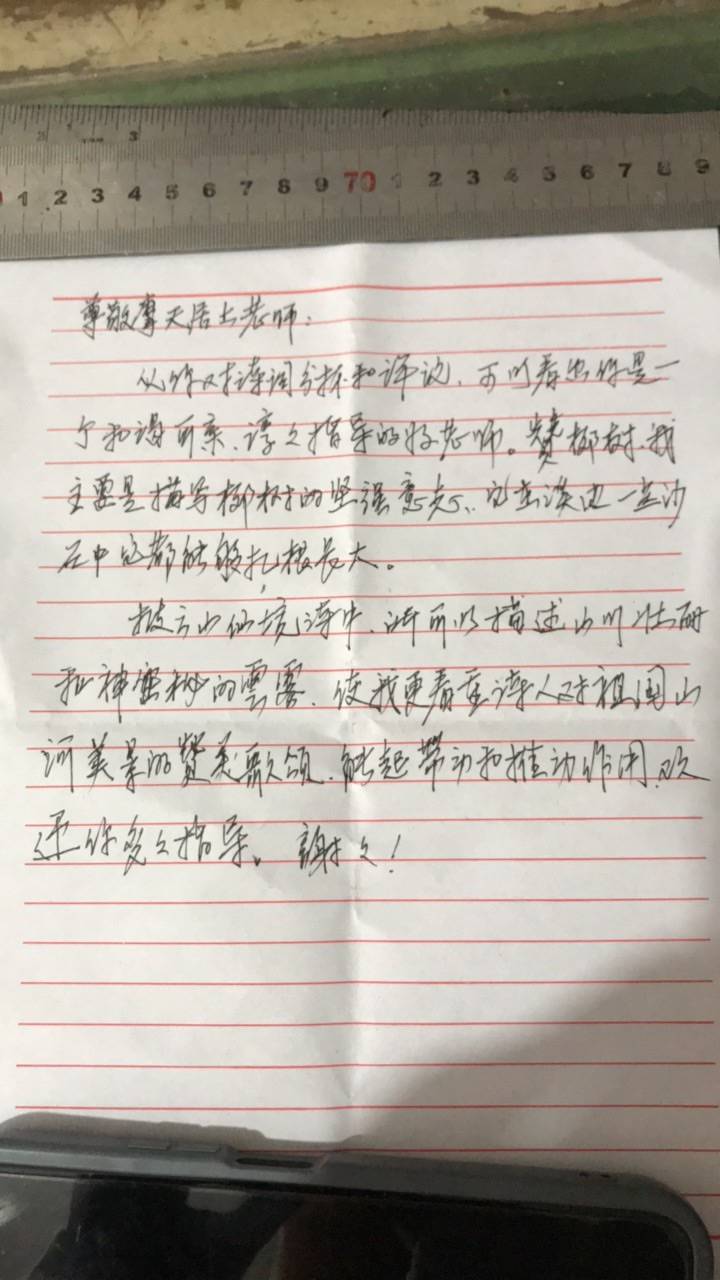 1 2 3 4 5 6 7 8 9 70 1 2 3 4 5 6 7 8 9
尊敬摩天居士老师：
从你对诗词分析和评说、可以看出你是一
个和谒可亲、谆々指导的好老师。赞柳树、我
主要是描写柳树的坚强意志、它在淡边一些沙
石中它都能够扎根长大。
披云山仙境诗中、断可以描述山川壮丽
和神密秘的雲雾、使我更看重诗人对祖国山
河美景的赞美歌颂、能起带动和推动作用、欢
迎你多々指导。謝々！